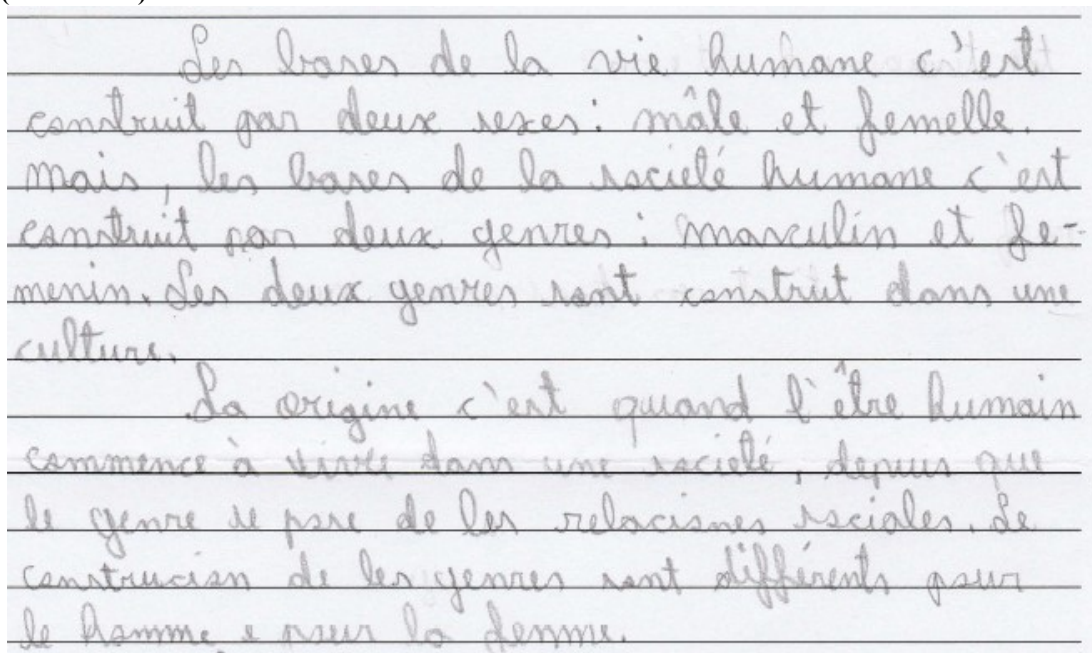 Les bases de la vie humane c'est
construit par deux sexes: mâle et femelle.
Mais, les bases de la société humane c'est
construit par deux genres: masculin et fe-
menin. Les deux genres sont construt dans une
culture.
La origine c'est quand l'être humain
commence à vivre dans une société, depuis que
le genre se pase de les relaciones sociales. Le
construcion de les genres sont différents pour
le homme e pour la femme.